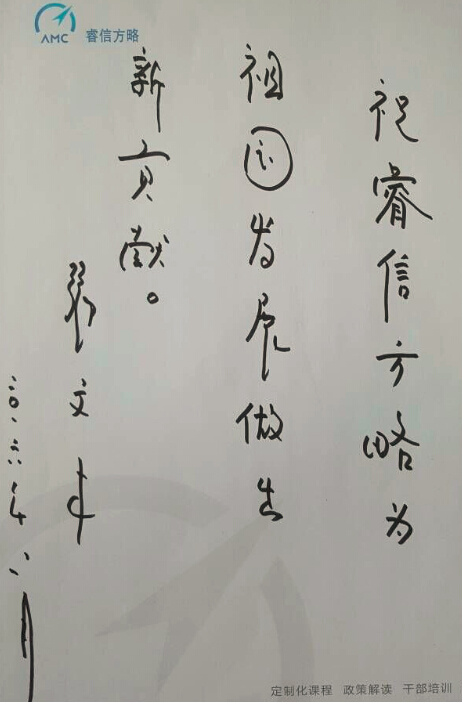 AMC 睿信方略
祝睿信方略为
祖国发展做出
新贡献。
文
二〇一六年八月
定制化课程 政策解读 干部培训